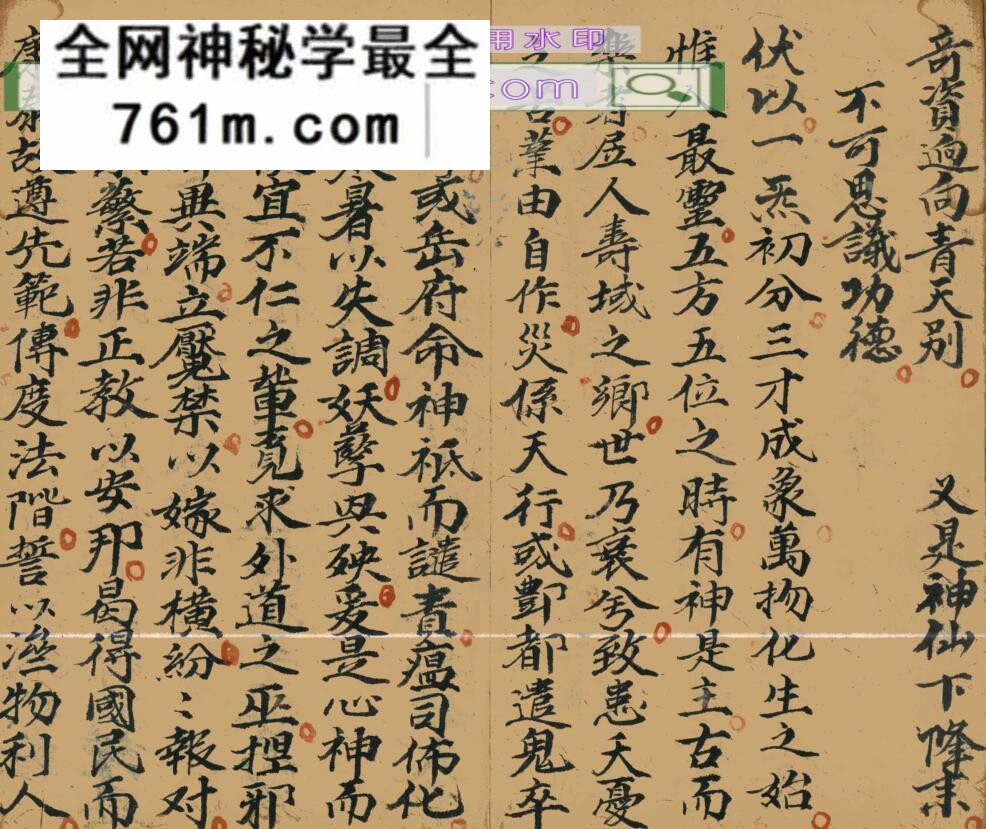 全网神秘学最全
761m.com
用水印
com
奇資逈向青天别 又是神仙下降来
不可思議功德
伏以一炁初分三才成象萬物化生之始
惟人最靈五方五位之時有神是主古而
樂者居人壽域之鄉世乃衰兮致患夭憂
之苦業由自作災係天行或酆都遣鬼卒
或岳府命神祇而譴責瘟司佈化
暑以失調妖孽與殃爰是心神而
宜不仁之輩竟求外道之巫捏邪
異端立魘禁以嫁非横紛〻報对
繁若非正教以安邦曷得國民而
故遵先範傳度法階誓以濟物利人